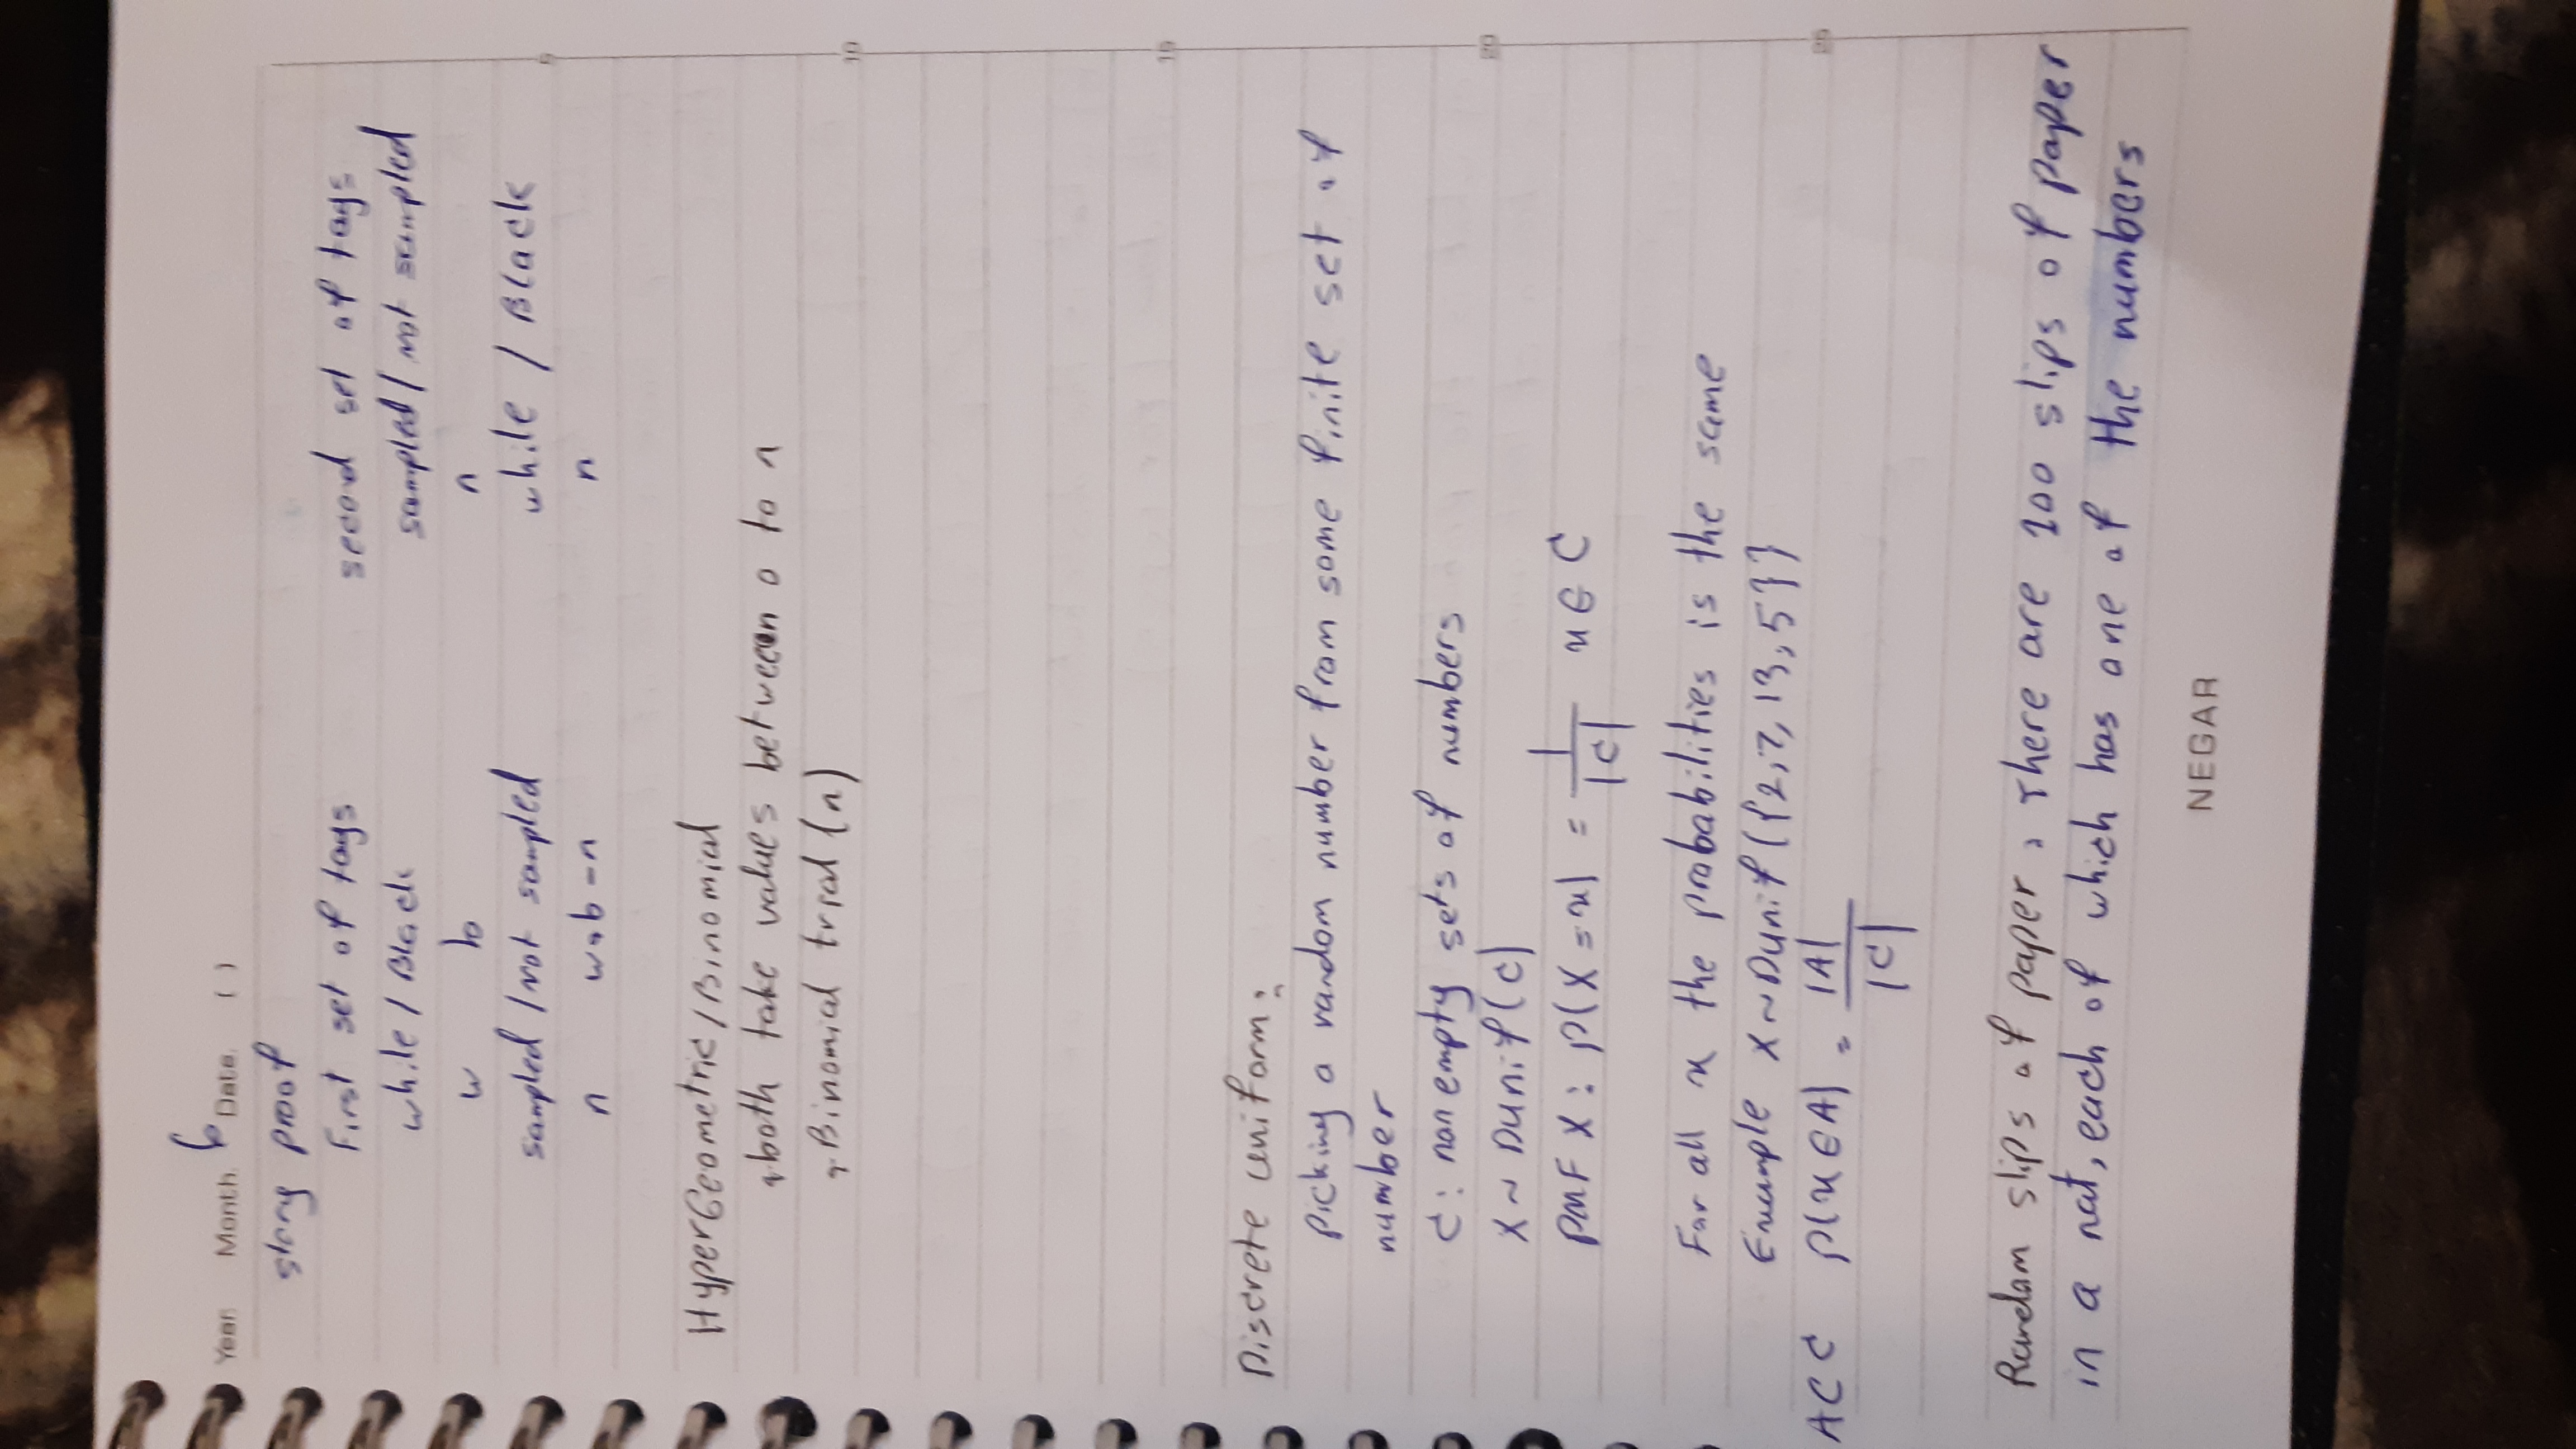 Year Month. 6 Date. ( )
story proof
First set of tags second set of tags
while / Black sampled / not sampled
w b n
sampled / not sampled while / Black
n w+b-n n
HyperGeometric / Binomial
both take values between 0 to n
Binomial trial (n)
Discrete uniform:
picking a random number from some finite set of
number
C: non empty sets of numbers
X ~ Dunif(C)
PMF X: P(X = x) = 1/|C| x ∈ C
For all x the probabilities is the same
Example X ~ Dunif({2,7,13,5}}
A C C P(x ∈ A) = |A|/|C|
Random slips of paper: There are 100 slips of paper
in a hat, each of which has one of the numbers
NEGAR
5
10
15
20
25